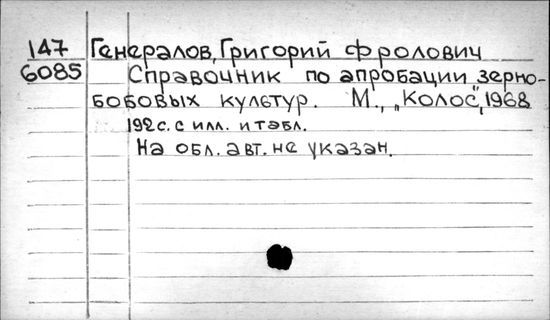 147 Генералов, Григорий Фролович
6085 Справочник по апробации зерно-
бобовых культур. М., „Колос", 1968
192 с. с илл. и табл.
На обл. авт. не указан.